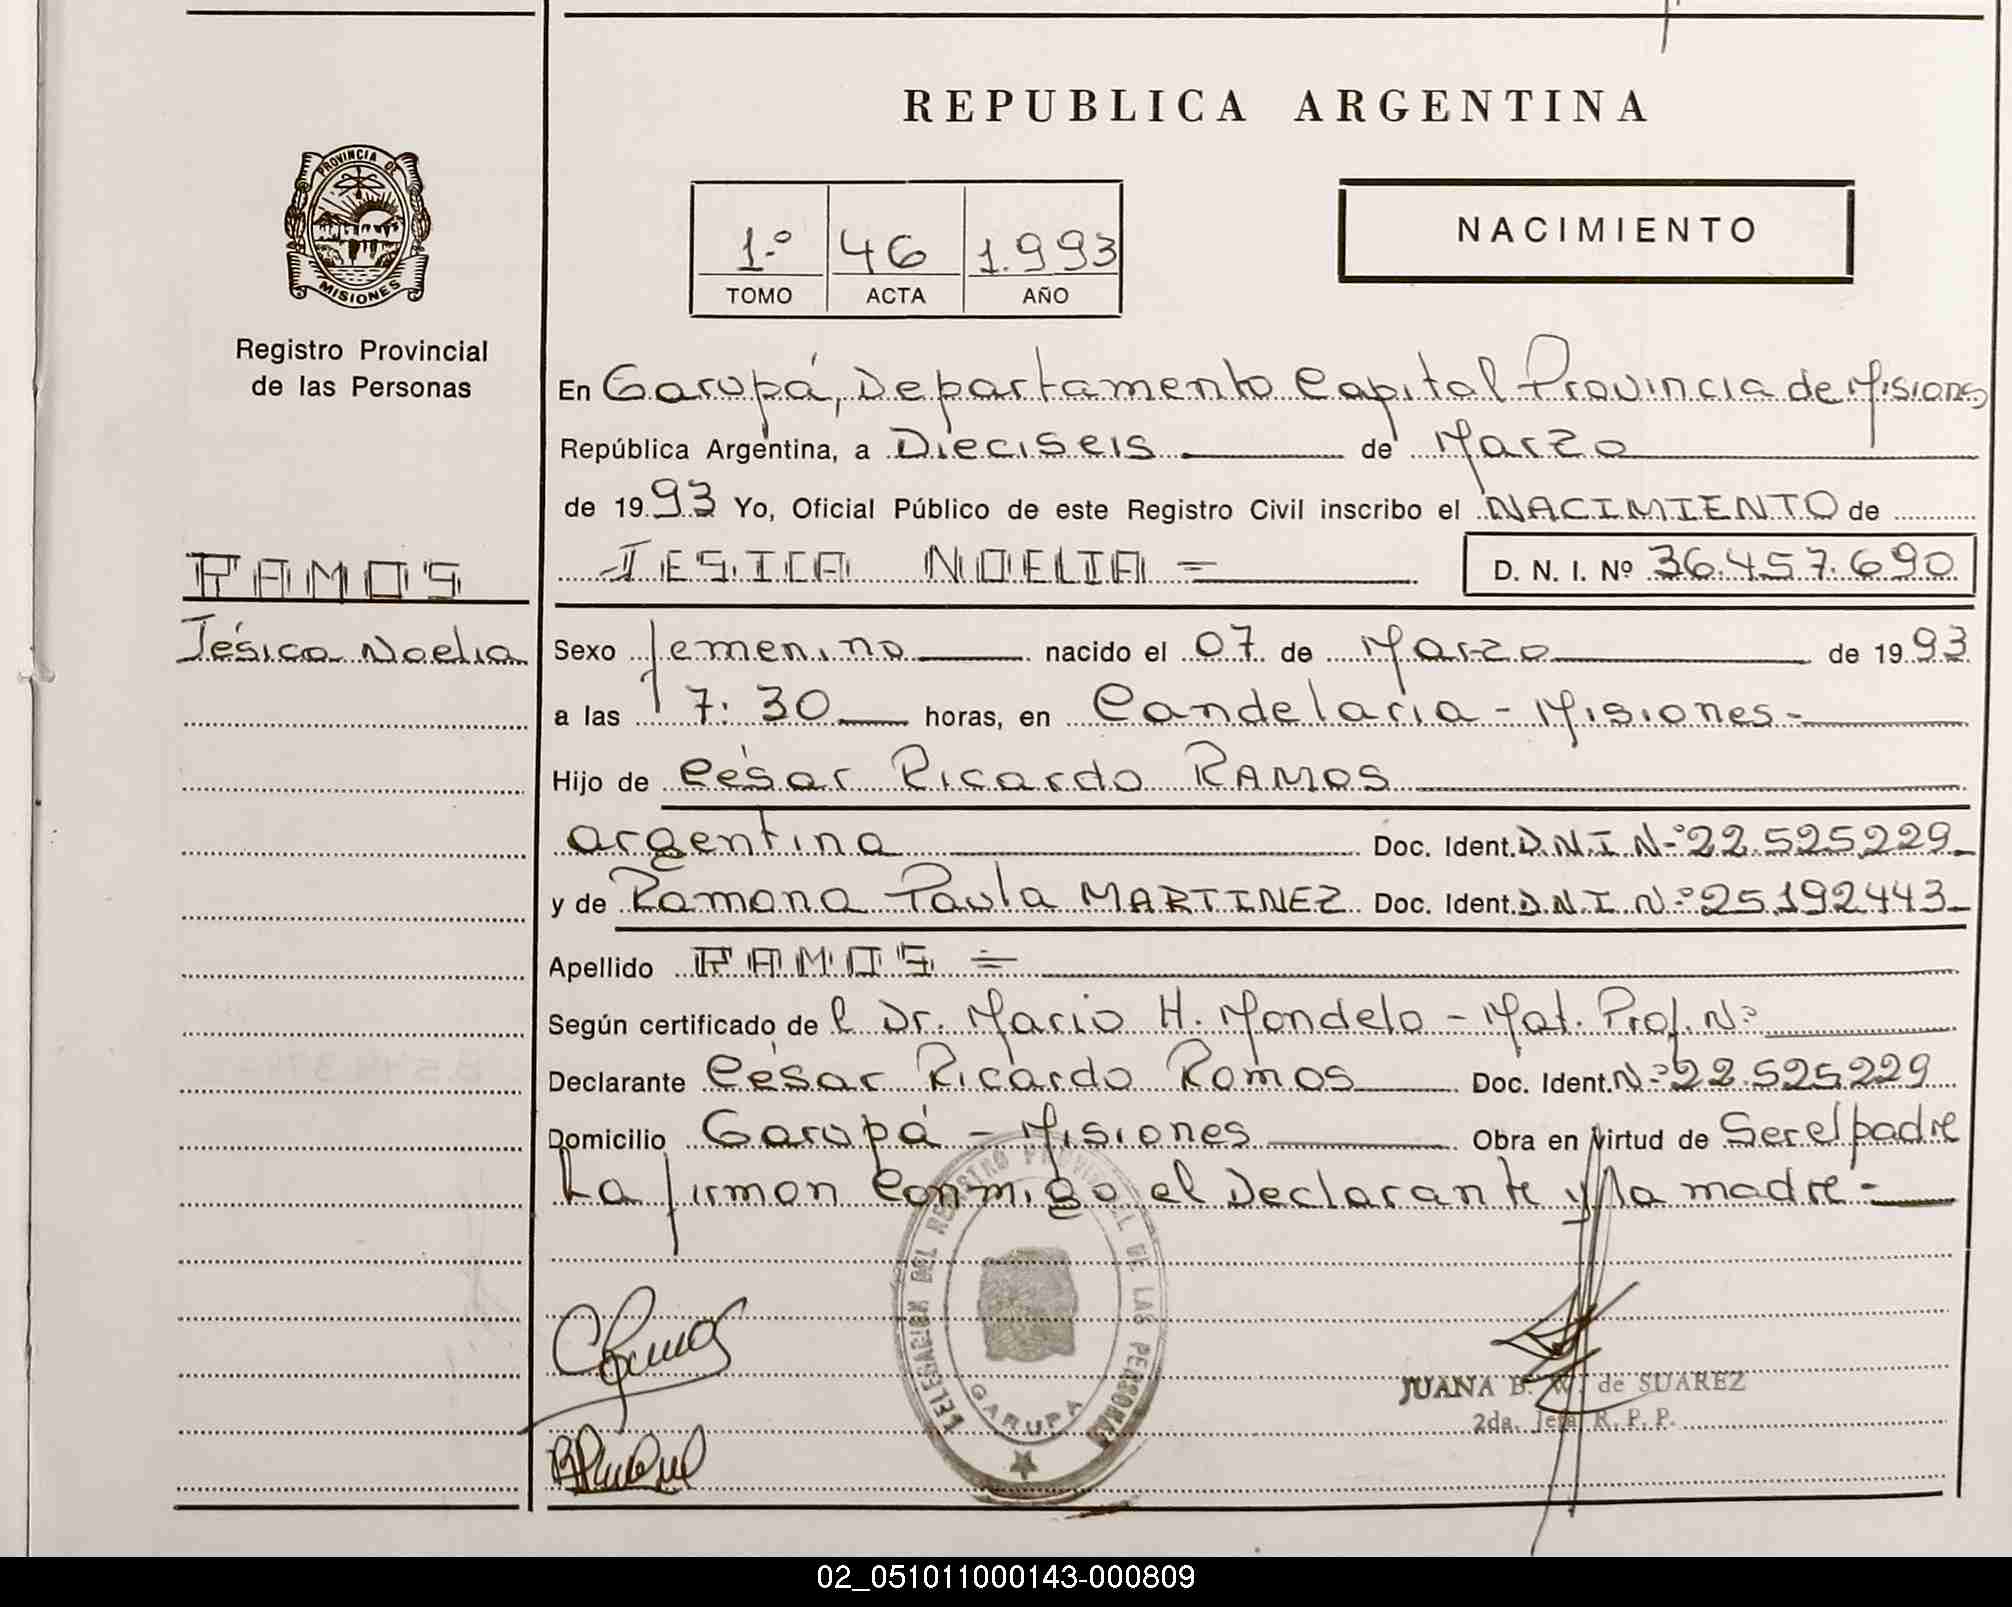 REPUBLICA ARGENTINA
PROVINCIA DE
MISIONES
Registro Provincial
de las Personas
1.º 46 1.993
TOMO ACTA AÑO
NACIMIENTO
En Garupá, Departamento Capital Provincia de Misiones
República Argentina, a Dieciseis de Marzo
de 1993 Yo, Oficial Público de este Registro Civil inscribo el NACIMIENTO de
RAMOS
Jésica Noelia
JESICA NOELIA = D. N. I. Nº 36.457.690
Sexo femenino nacido el 07 de Marzo de 1993
a las 7:30 horas, en Candelaria - Misiones -
Hijo de César Ricardo RAMOS
argentina Doc. Ident. D.N.I. Nº 22.525.229
y de Ramona Paula MARTINEZ Doc. Ident. D.N.I. Nº 25.192443
Apellido RAMOS =
Según certificado de l Dr. Mario H. Mondelo - Mat. Prof. Nº
Declarante César Ricardo Ramos Doc. Ident. Nº 22.525.229
Domicilio Garupá - Misiones Obra en virtud de Ser el padre
La firman conmigo el Declarante y la madre -
DELEGACION DEL REGISTRO PROVINCIAL DE LAS PERSONAS
GARUPA
JUANA B. W. de SUAREZ
2da. Jefa R. P. P.
02_051011000143-000809